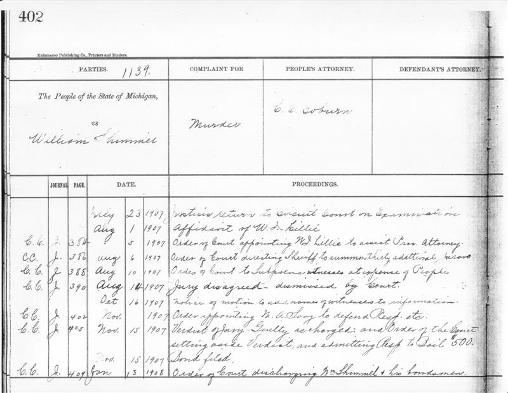 402
Kalamazoo Publishing Co., Printers and Binders.
PARTIES. 1139. COMPLAINT FOR PEOPLE'S ATTORNEY. DEFENDANT'S ATTORNEY.
The People of the State of Michigan,
vs
William Shimmel
Murder
C. E. Coburn
JOURNAL PAGE. DATE. PROCEEDINGS.
July 23 1907 Justice's return to Circuit Court on Examination
Aug 1 1907 Affidavit of W. I. Lillie
C.C. J. 5 1907 Order of Court appointing W I Lillie to assist Pros. Attorney
CC. J. 386 aug 6 1907 Order of Court directing Sheriff to summon thirty additional jurors
C.C. J. 388 Aug 10 1907 Order of Court to Subpoena witnesses at expense of People
C.C. J. 390 Aug 14 1907 Jury disagreed dismissed by Court.
Oct 16 1907 notice of motion to add names of witnesses to information.
C.C. J. 402 Nov. 1907 Order appointing to defend Resp. etc.
C.C. J. 405 Nov. 15 1907 Verdict of Jury Guilty as charged: and Order of the Court
setting aside Verdict, and admitting Resp to Bail $500.
Nov. 15 1907 Bond filed.
C.C. J. 409 Jan 13 1908 Order of Court discharging Wm Shimmel & his bondsmen.